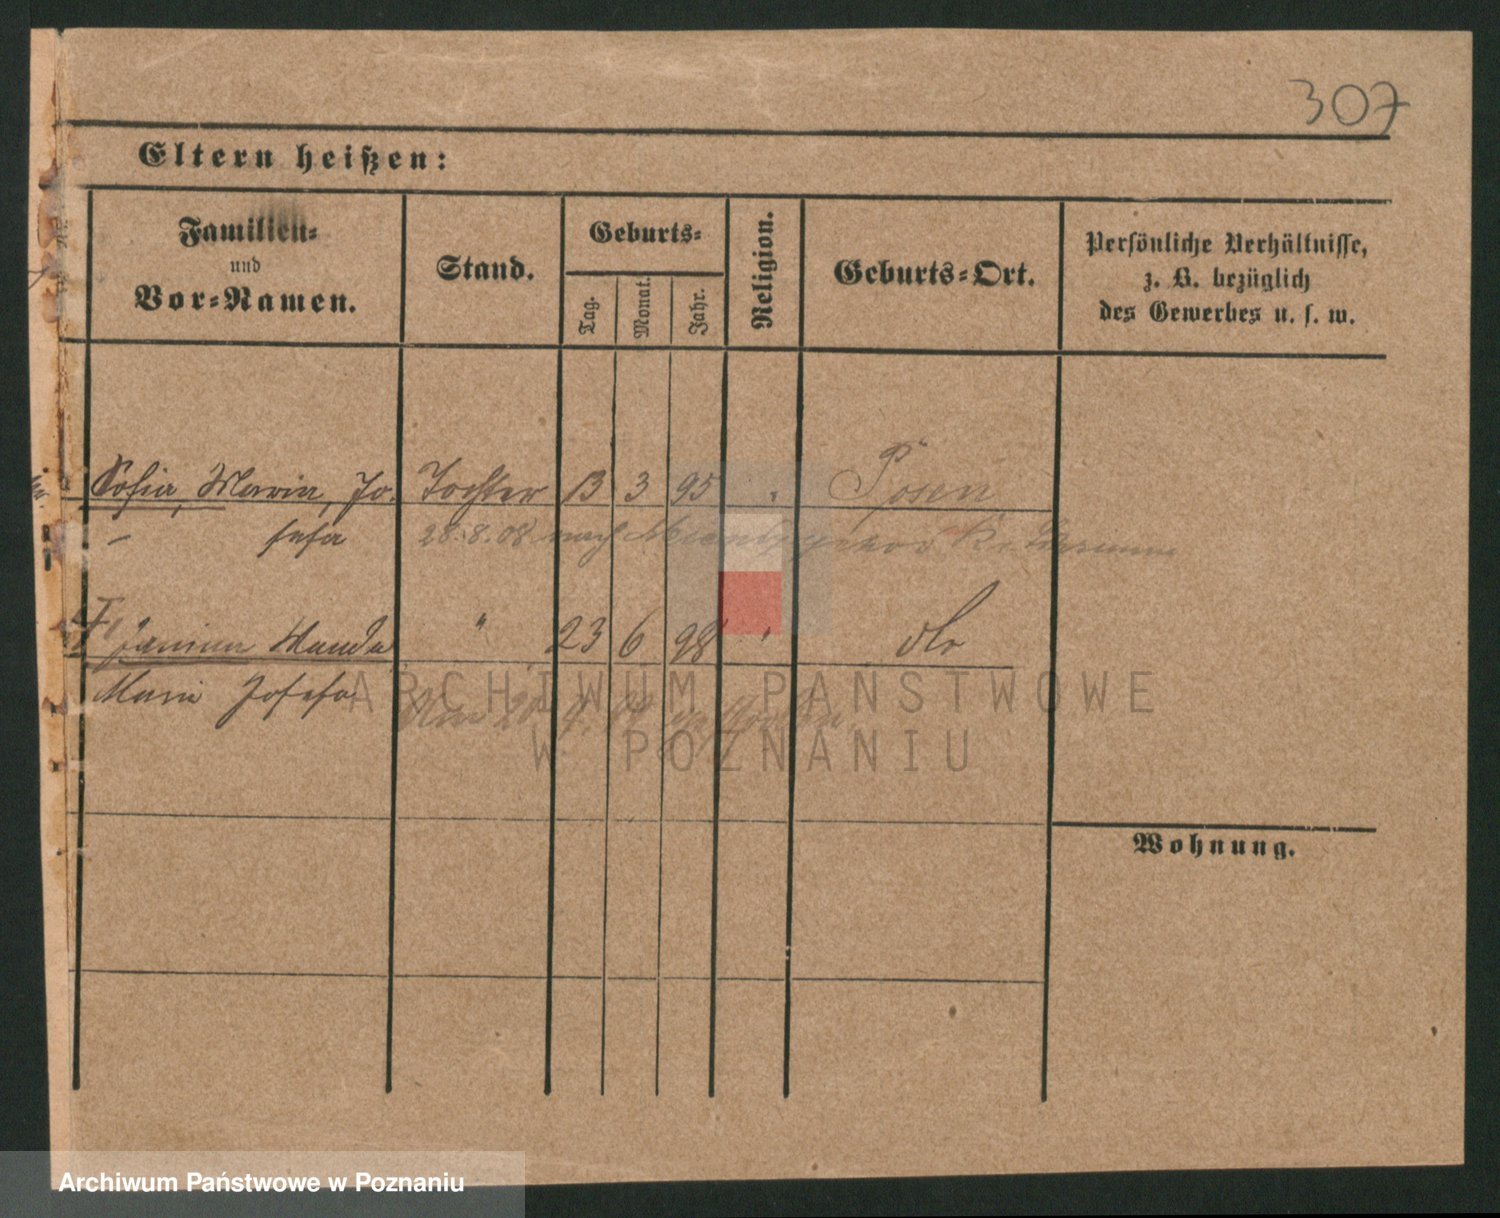 307
Eltern heißen:
Familien-
und
Vor-Namen.
Stand.
Geburts-
Tag.
Monat.
Jahr.
Religion.
Geburts-Ort.
Persönliche Verhältnisse,
z. B. bezüglich
des Gewerbes u. s. w.
Sofia, Maria, Jo- Tochter 13 3 95 " Posen
sefa
28.8.08 nach
Janina Wanda " 23 6 98 " dto
Maria Josefa
ARCHIWUM PAŃSTWOWE
W POZNANIU
Wohnung.
Archiwum Państwowe w Poznaniu